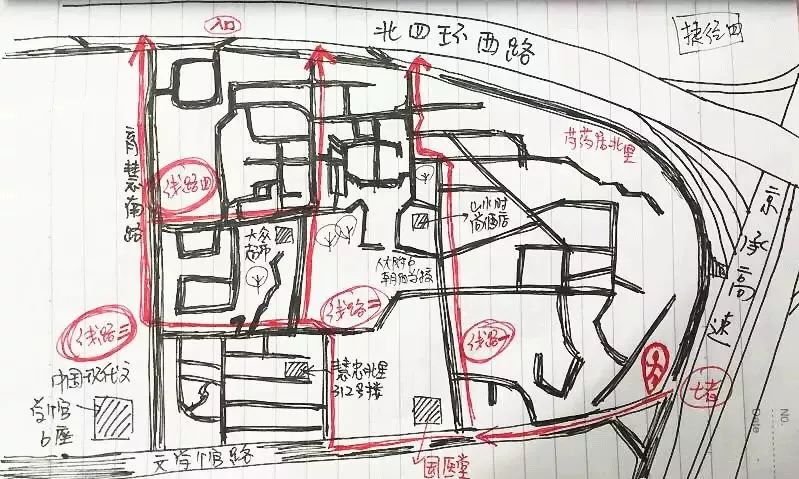 入口
北四环西路
捷径四
育慧南路
芍药居北里
线路四
山水时
尚酒店
京承高速
大众
超市
人大附中
朝阳学校
线路二
线路三
线路一
中国现代文
学馆
B座
慧忠北里
312号楼
No.
Date
文学馆路
国医堂